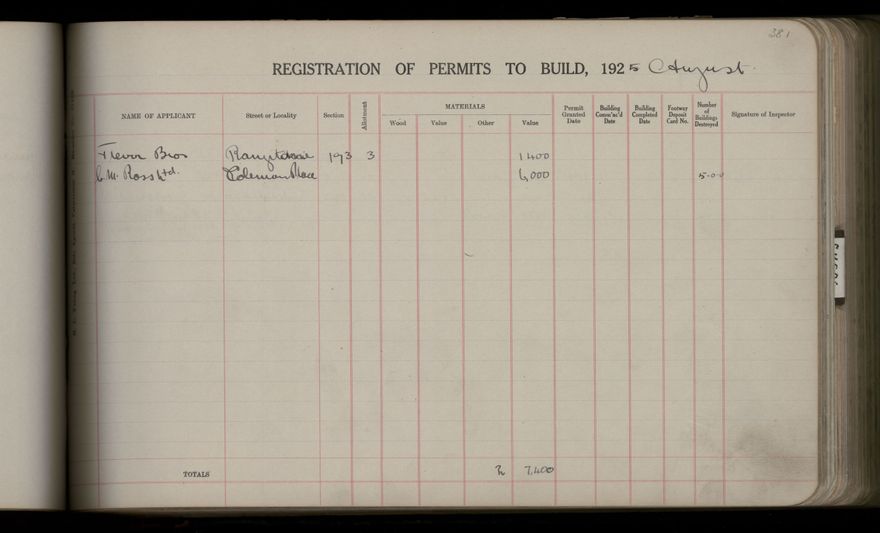 381
REGISTRATION OF PERMITS TO BUILD, 1925 August
NAME OF APPLICANT Street or Locality Section Allotment MATERIALS Permit Granted Date Building Comm'nc'd Date Building Completed Date Footway Deposit Card No. Number of Buildings Destroyed Signature of Inspector
Wood Value Other Value
Trevor Bros Rangitikei 193 3 1400
C.M. Ross Ltd. Coleman Place 6,000 5-0-0
TOTALS 2 7,400